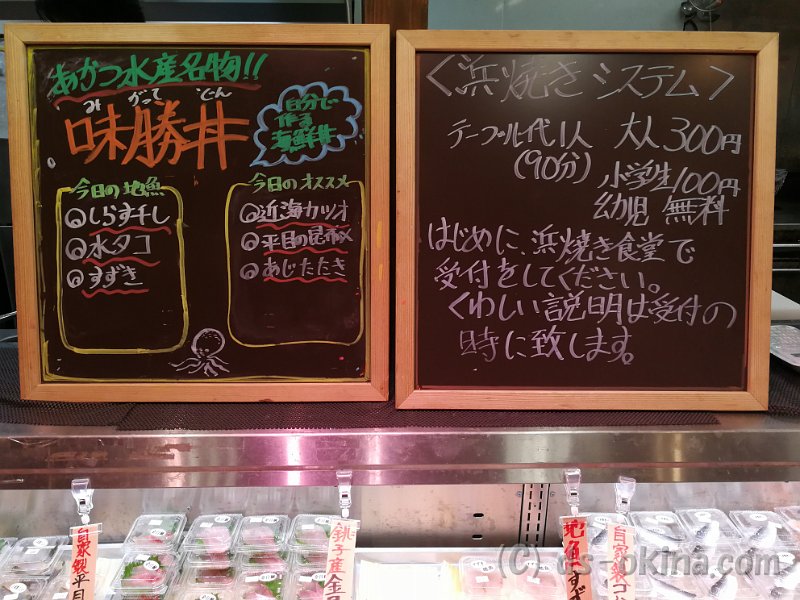 あかつ水産名物!!
み がって どん
味勝丼
自分で
作る
海鮮丼
今日の地魚
しらす干し
水タコ
すずき
今日のオススメ
近海カツオ
平目の昆布〆
あじたたき
<浜焼きシステム>
テーブル代1人 大人300円
(90分) 小学生100円
幼児 無料
はじめに、浜焼き食堂で
受付をしてください。
くわしい説明は受付の
時に致します。
自家製 平目
銚子産 金
地魚 すず
自家製
(C) cs-okina.com